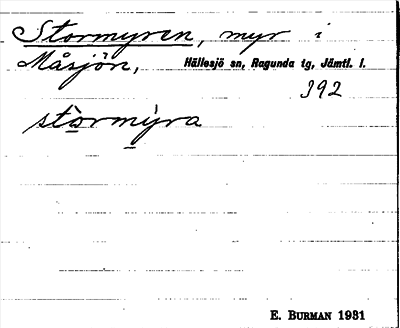 Stormyren, myr i
Måsjön, Hällesjö sn, Ragunda tg, Jämtl. l.
392
stòrmýra
E. BURMAN 1931